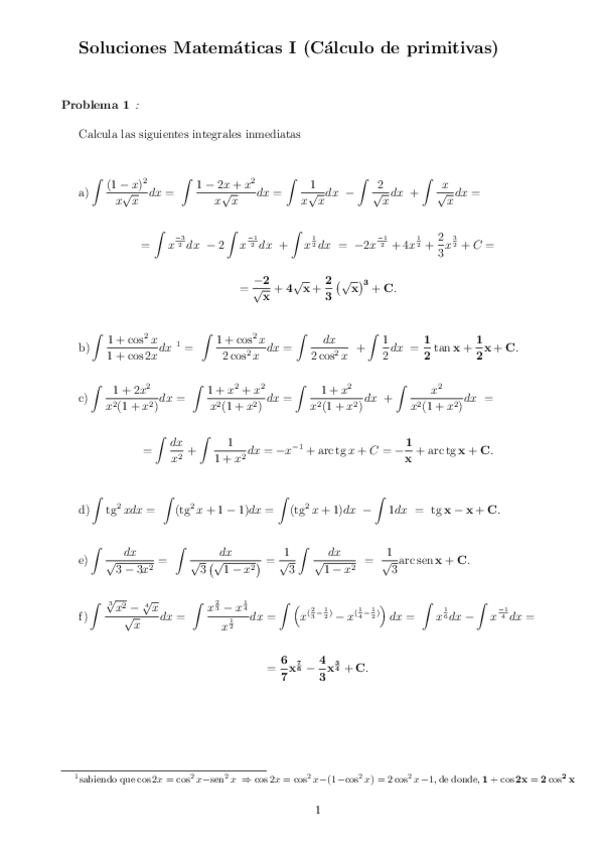 Soluciones Matemáticas I (Cálculo de primitivas)
Problema 1 :
Calcula las siguientes integrales inmediatas
a) ∫ (1 − x)² / (x√x) dx = ∫ (1 − 2x + x²) / (x√x) dx = ∫ 1 / (x√x) dx − ∫ 2 / √x dx + ∫ x / √x dx =
= ∫ x^(−3/2) dx − 2 ∫ x^(−1/2) dx + ∫ x^(1/2) dx = −2x^(−1/2) + 4x^(1/2) + 2/3 x^(3/2) + C =
= −2/√x + 4√x + 2/3 (√x)³ + C.
b) ∫ (1 + cos² x) / (1 + cos 2x) dx ¹ = ∫ (1 + cos² x) / (2 cos² x) dx = ∫ dx / (2 cos² x) + ∫ 1/2 dx = 1/2 tan x + 1/2 x + C.
c) ∫ (1 + 2x²) / (x²(1 + x²)) dx = ∫ (1 + x² + x²) / (x²(1 + x²)) dx = ∫ (1 + x²) / (x²(1 + x²)) dx + ∫ x² / (x²(1 + x²)) dx =
= ∫ dx / x² + ∫ 1 / (1 + x²) dx = −x⁻¹ + arc tg x + C = −1/x + arc tg x + C.
d) ∫ tg² xdx = ∫ (tg² x + 1 − 1)dx = ∫ (tg² x + 1)dx − ∫ 1dx = tg x − x + C.
e) ∫ dx / √(3 − 3x²) = ∫ dx / (√3 (√(1 − x²))) = 1/√3 ∫ dx / √(1 − x²) = 1/√3 arc sen x + C.
f) ∫ (∛(x²) − ∜x) / √x dx = ∫ (x^(2/3) − x^(1/4)) / x^(1/2) dx = ∫ (x^(2/3 − 1/2) − x^(1/4 − 1/2)) dx = ∫ x^(1/6) dx − ∫ x^(−1/4) dx =
= 6/7 x^(7/6) − 4/3 x^(3/4) + C.
¹sabiendo que cos 2x = cos² x−sen² x ⇒ cos 2x = cos² x−(1−cos² x) = 2 cos² x−1, de donde, 1 + cos 2x = 2 cos² x
1